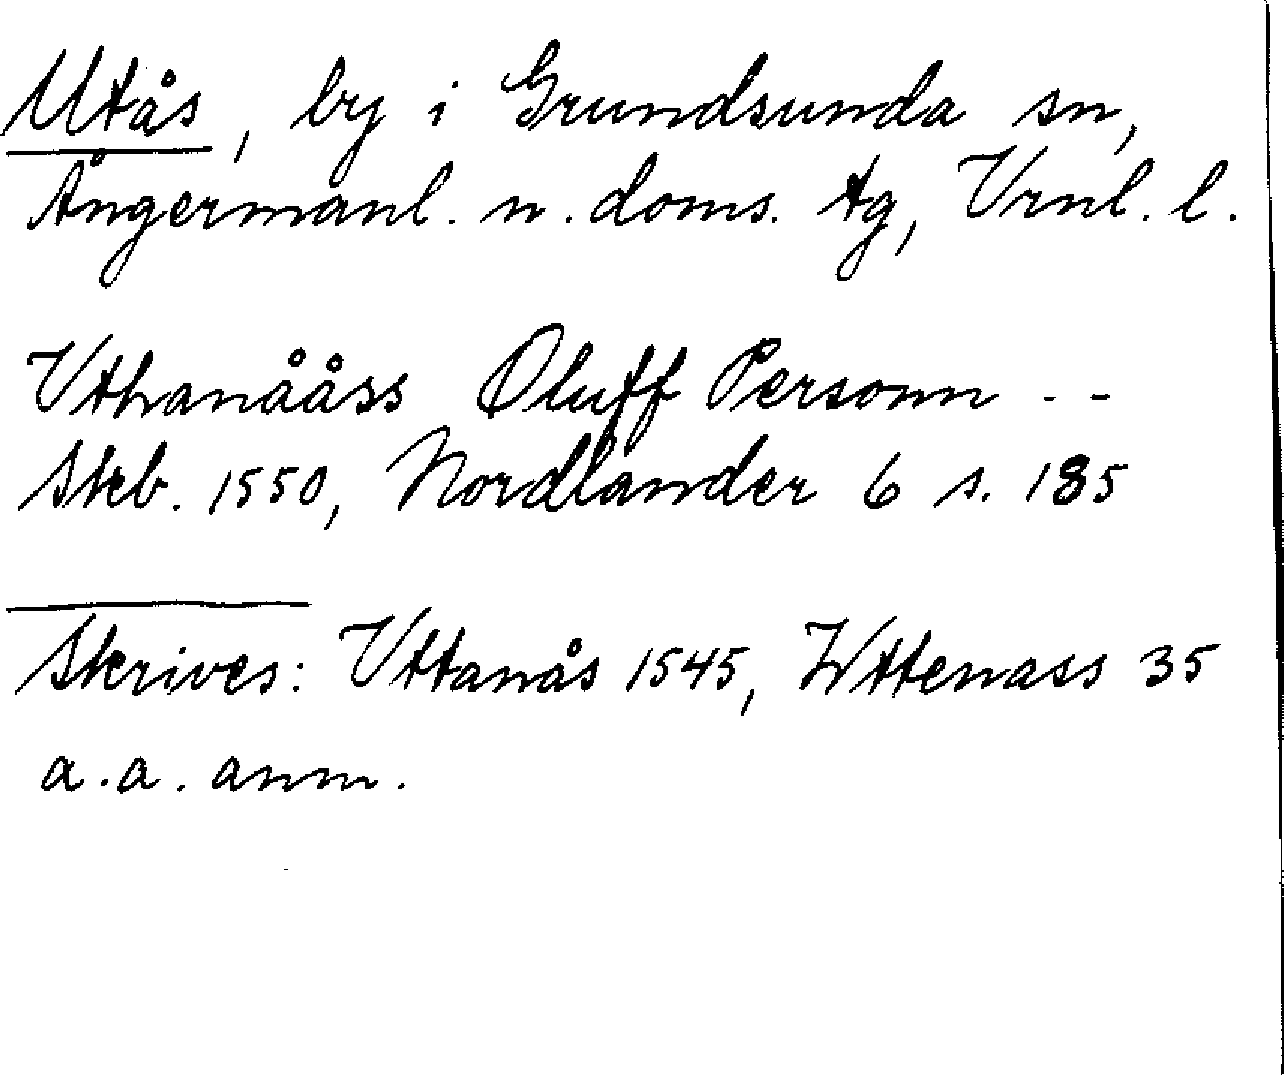 Utås, by i Grundsunda sn,
Ångermanl. n. doms. tg, Vrnl. l.
Vthanååss Oluff Personn - -
Skb. 1550, Nordlander 6 s. 185
Skrives: Vttanås 1545, Wttenass 35
a.a. anm.